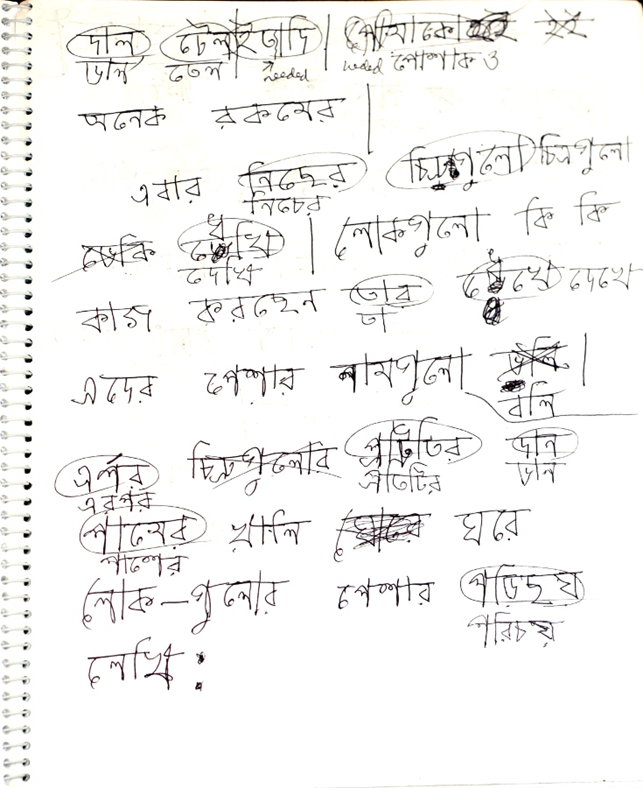 দাল টেল ইত্যাদি | পোষাকো হই
ডাল তেল needed needed পোশাক ও
অনেক রকমের |
এবার নিছের চিত্রগুলো চিত্রগুলো
নিচের
দেখি | লোকগুলো কি কি
দেখি
কাজ করছেন তার দেখে দেখে
তা
এদের পেশার নামগুলো |
বলি
এর্পর চিত্রগুলোর প্রতিটির দান
এরপর প্রতিটির ডান
পামের খালি ঘরে
পাশের
লোক-গুলোর পেশার পড়িছয়
পরিচয়
লেখি :